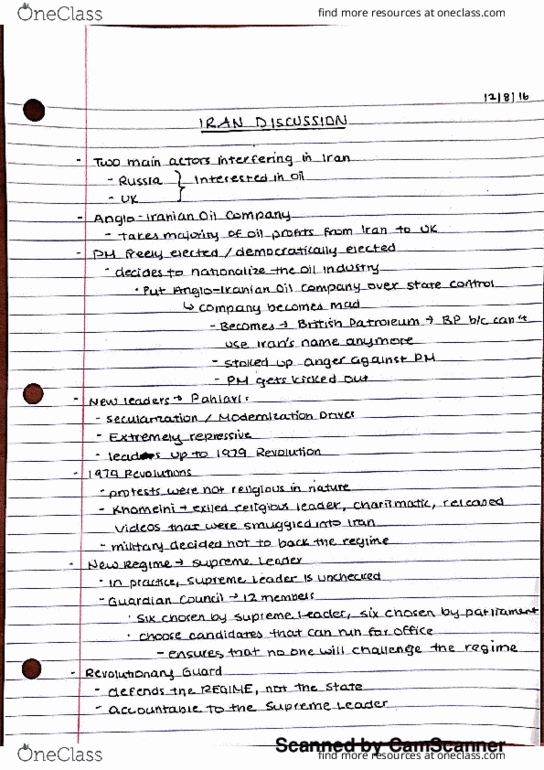 OneClass
find more resources at oneclass.com
12/8/16
IRAN DISCUSSION
- Two main actors interfering in Iran
- Russia } Interested in oil
- UK
- Anglo-Iranian Oil Company
- takes majority of oil profits from Iran to UK
- PM freely elected / democratically elected
- decides to nationalize the oil industry
• Put Anglo-Iranian Oil company over state control
↳ company becomes mad
- Becomes → British Patroleum → BP b/c can't
use Iran's name anymore
- stoked up anger against PM
- PM gets kicked out
- New leaders → Pahlavi:
- secularization / Modernization Drives
- Extremely repressive
- leads up to 1979 Revolution
- 1979 Revolutions
- protests were not religious in nature
- Khomeini → exiled religious leader, charismatic, released
videos that were smuggled into Iran
- military decided not to back the regime
- New Regime → Supreme Leader
- in practice, supreme leader is unchecked
- Guardian Council → 12 members
• Six chosen by supreme leader, six chosen by parliament
• choose candidates that can run for office
- ensures that no one will challenge the regime
- Revolutionary Guard
- defends the REGIME, not the state
- accountable to the Supreme Leader
Scanned by CamScanner
OneClass
find more resources at oneclass.com